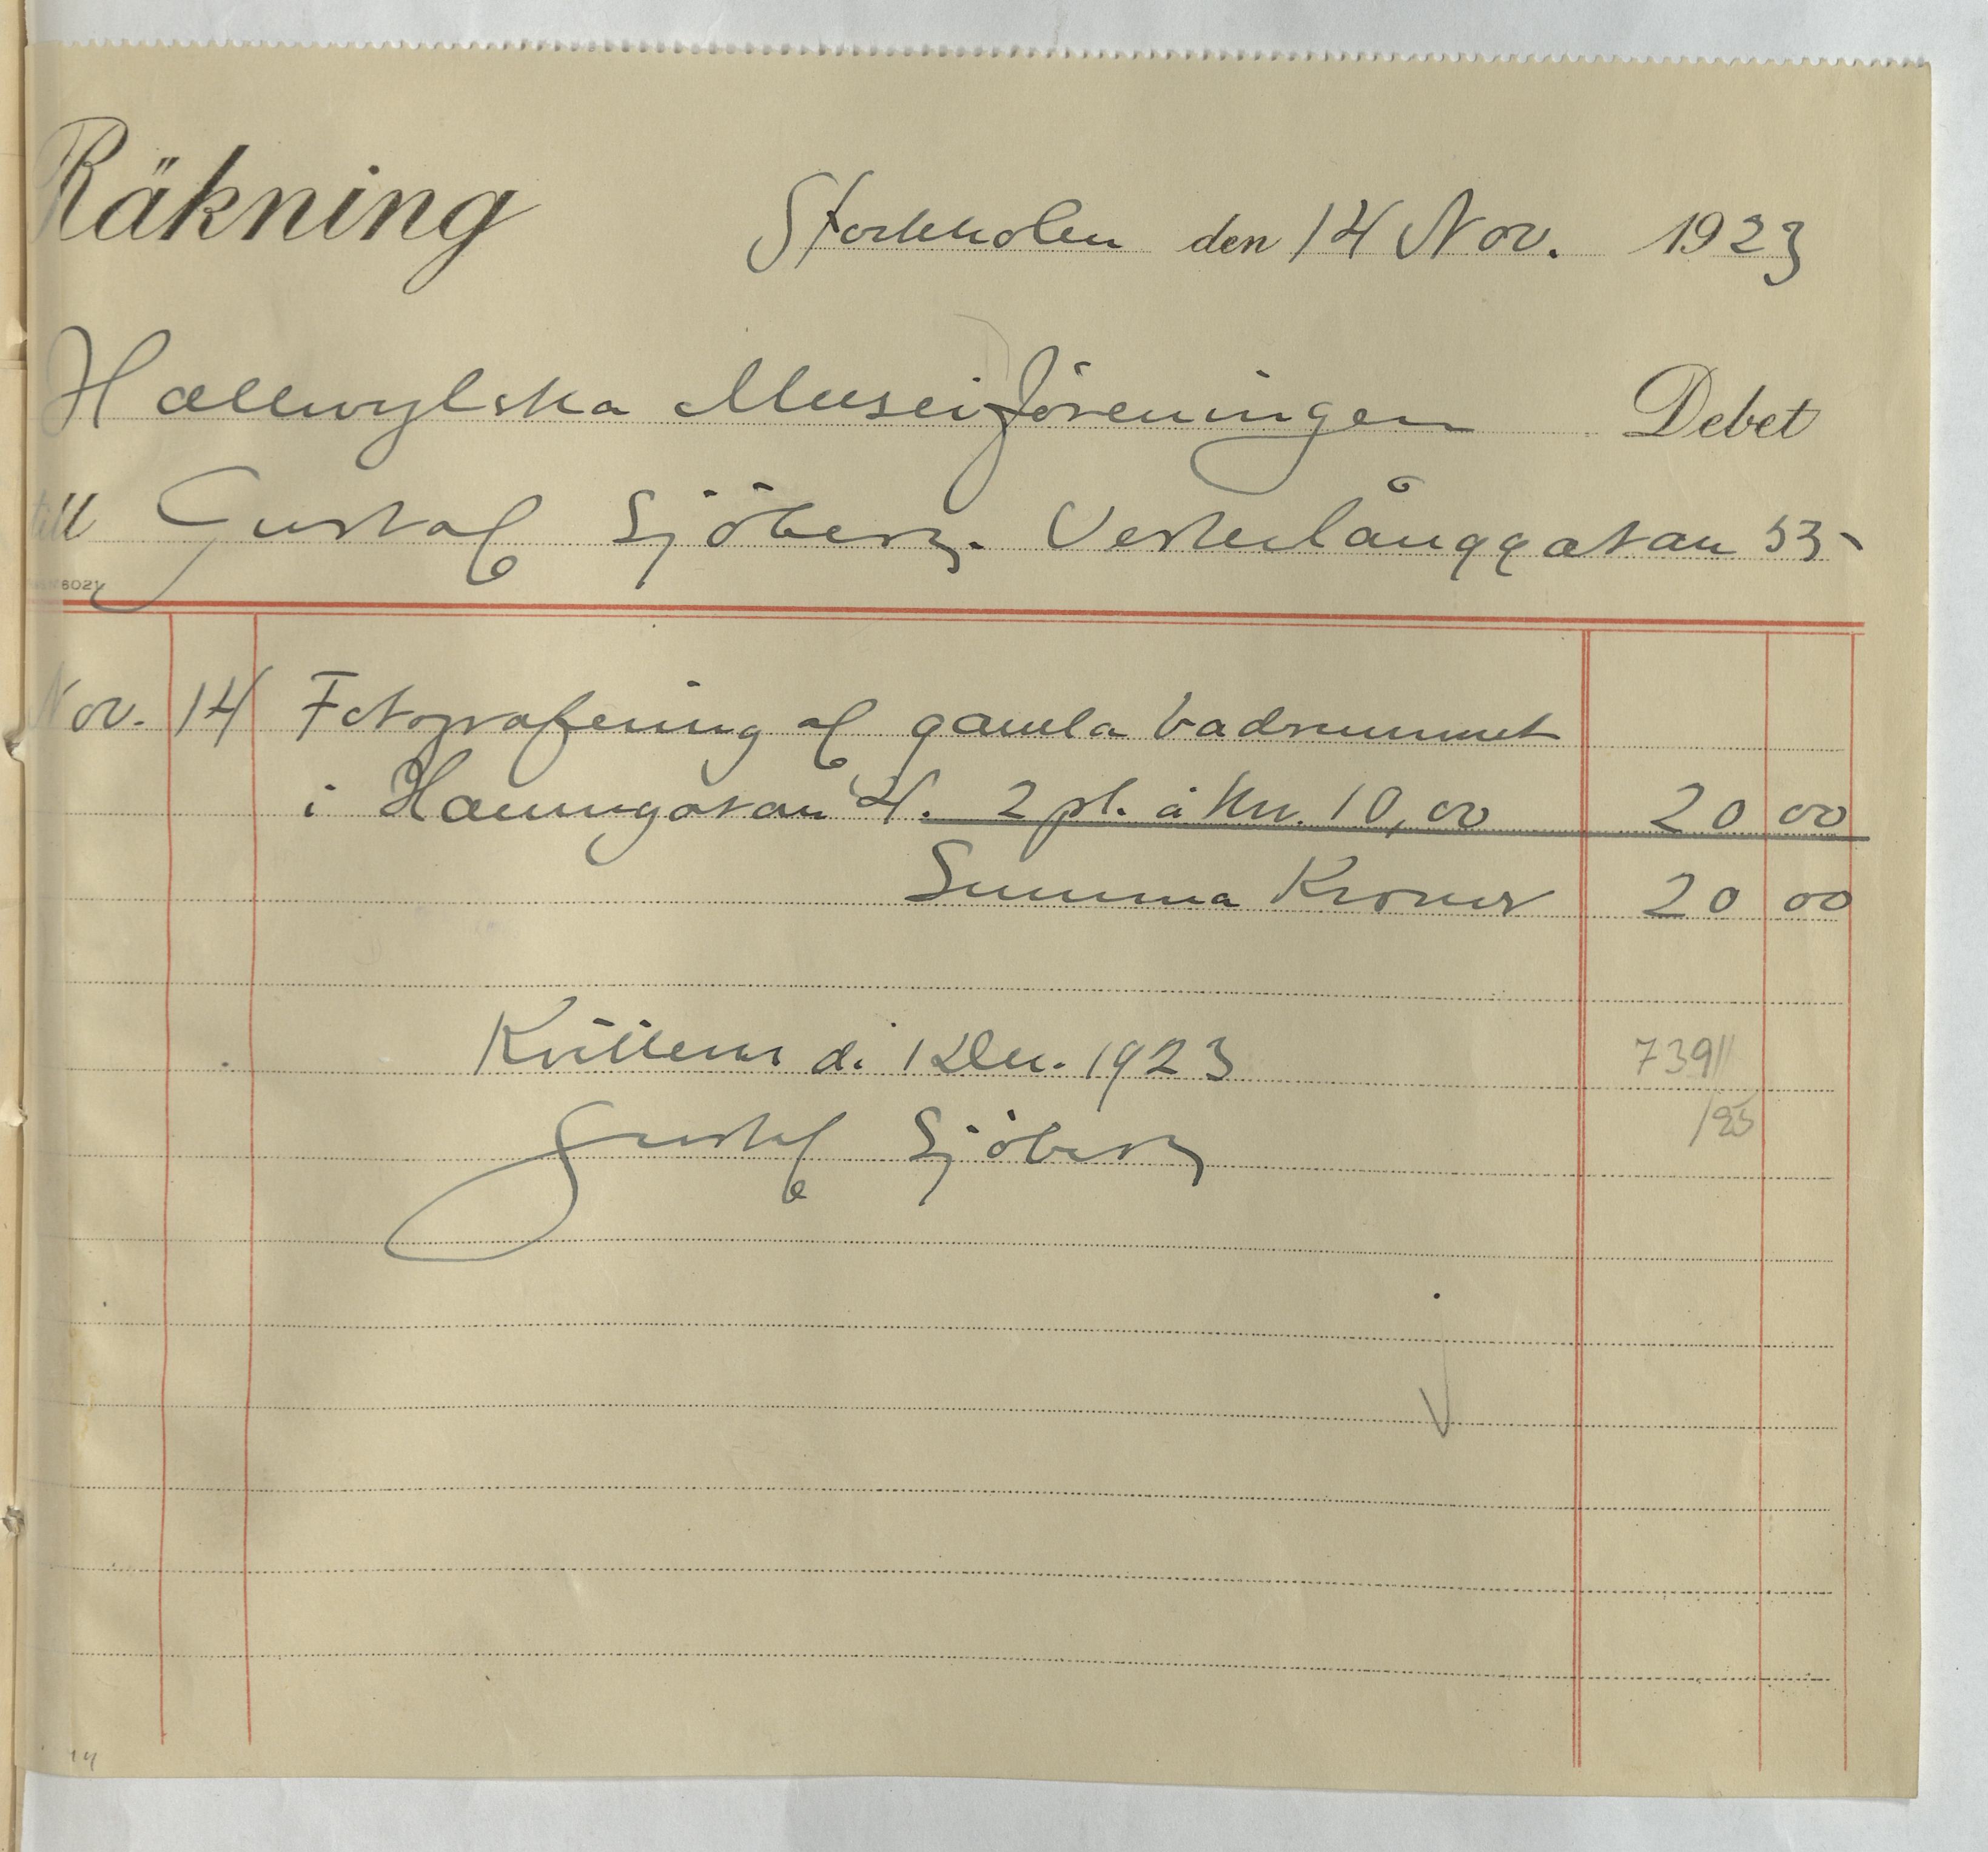 Räkning
Stockholm den 14 Nov. 1923
Hallwylska Museiföreningen Debet
till Gustaf Sjöberg. Vesterlånggatan 53
6021
Nov. 14 Fotografering af gamla badrummet
i Hamngatan 4. 2 pl. á Kr. 10,00 20 00
Summa Kronor 20 00
Kvitteras d. 1 Dec. 1923 739
Gustaf Sjöberg